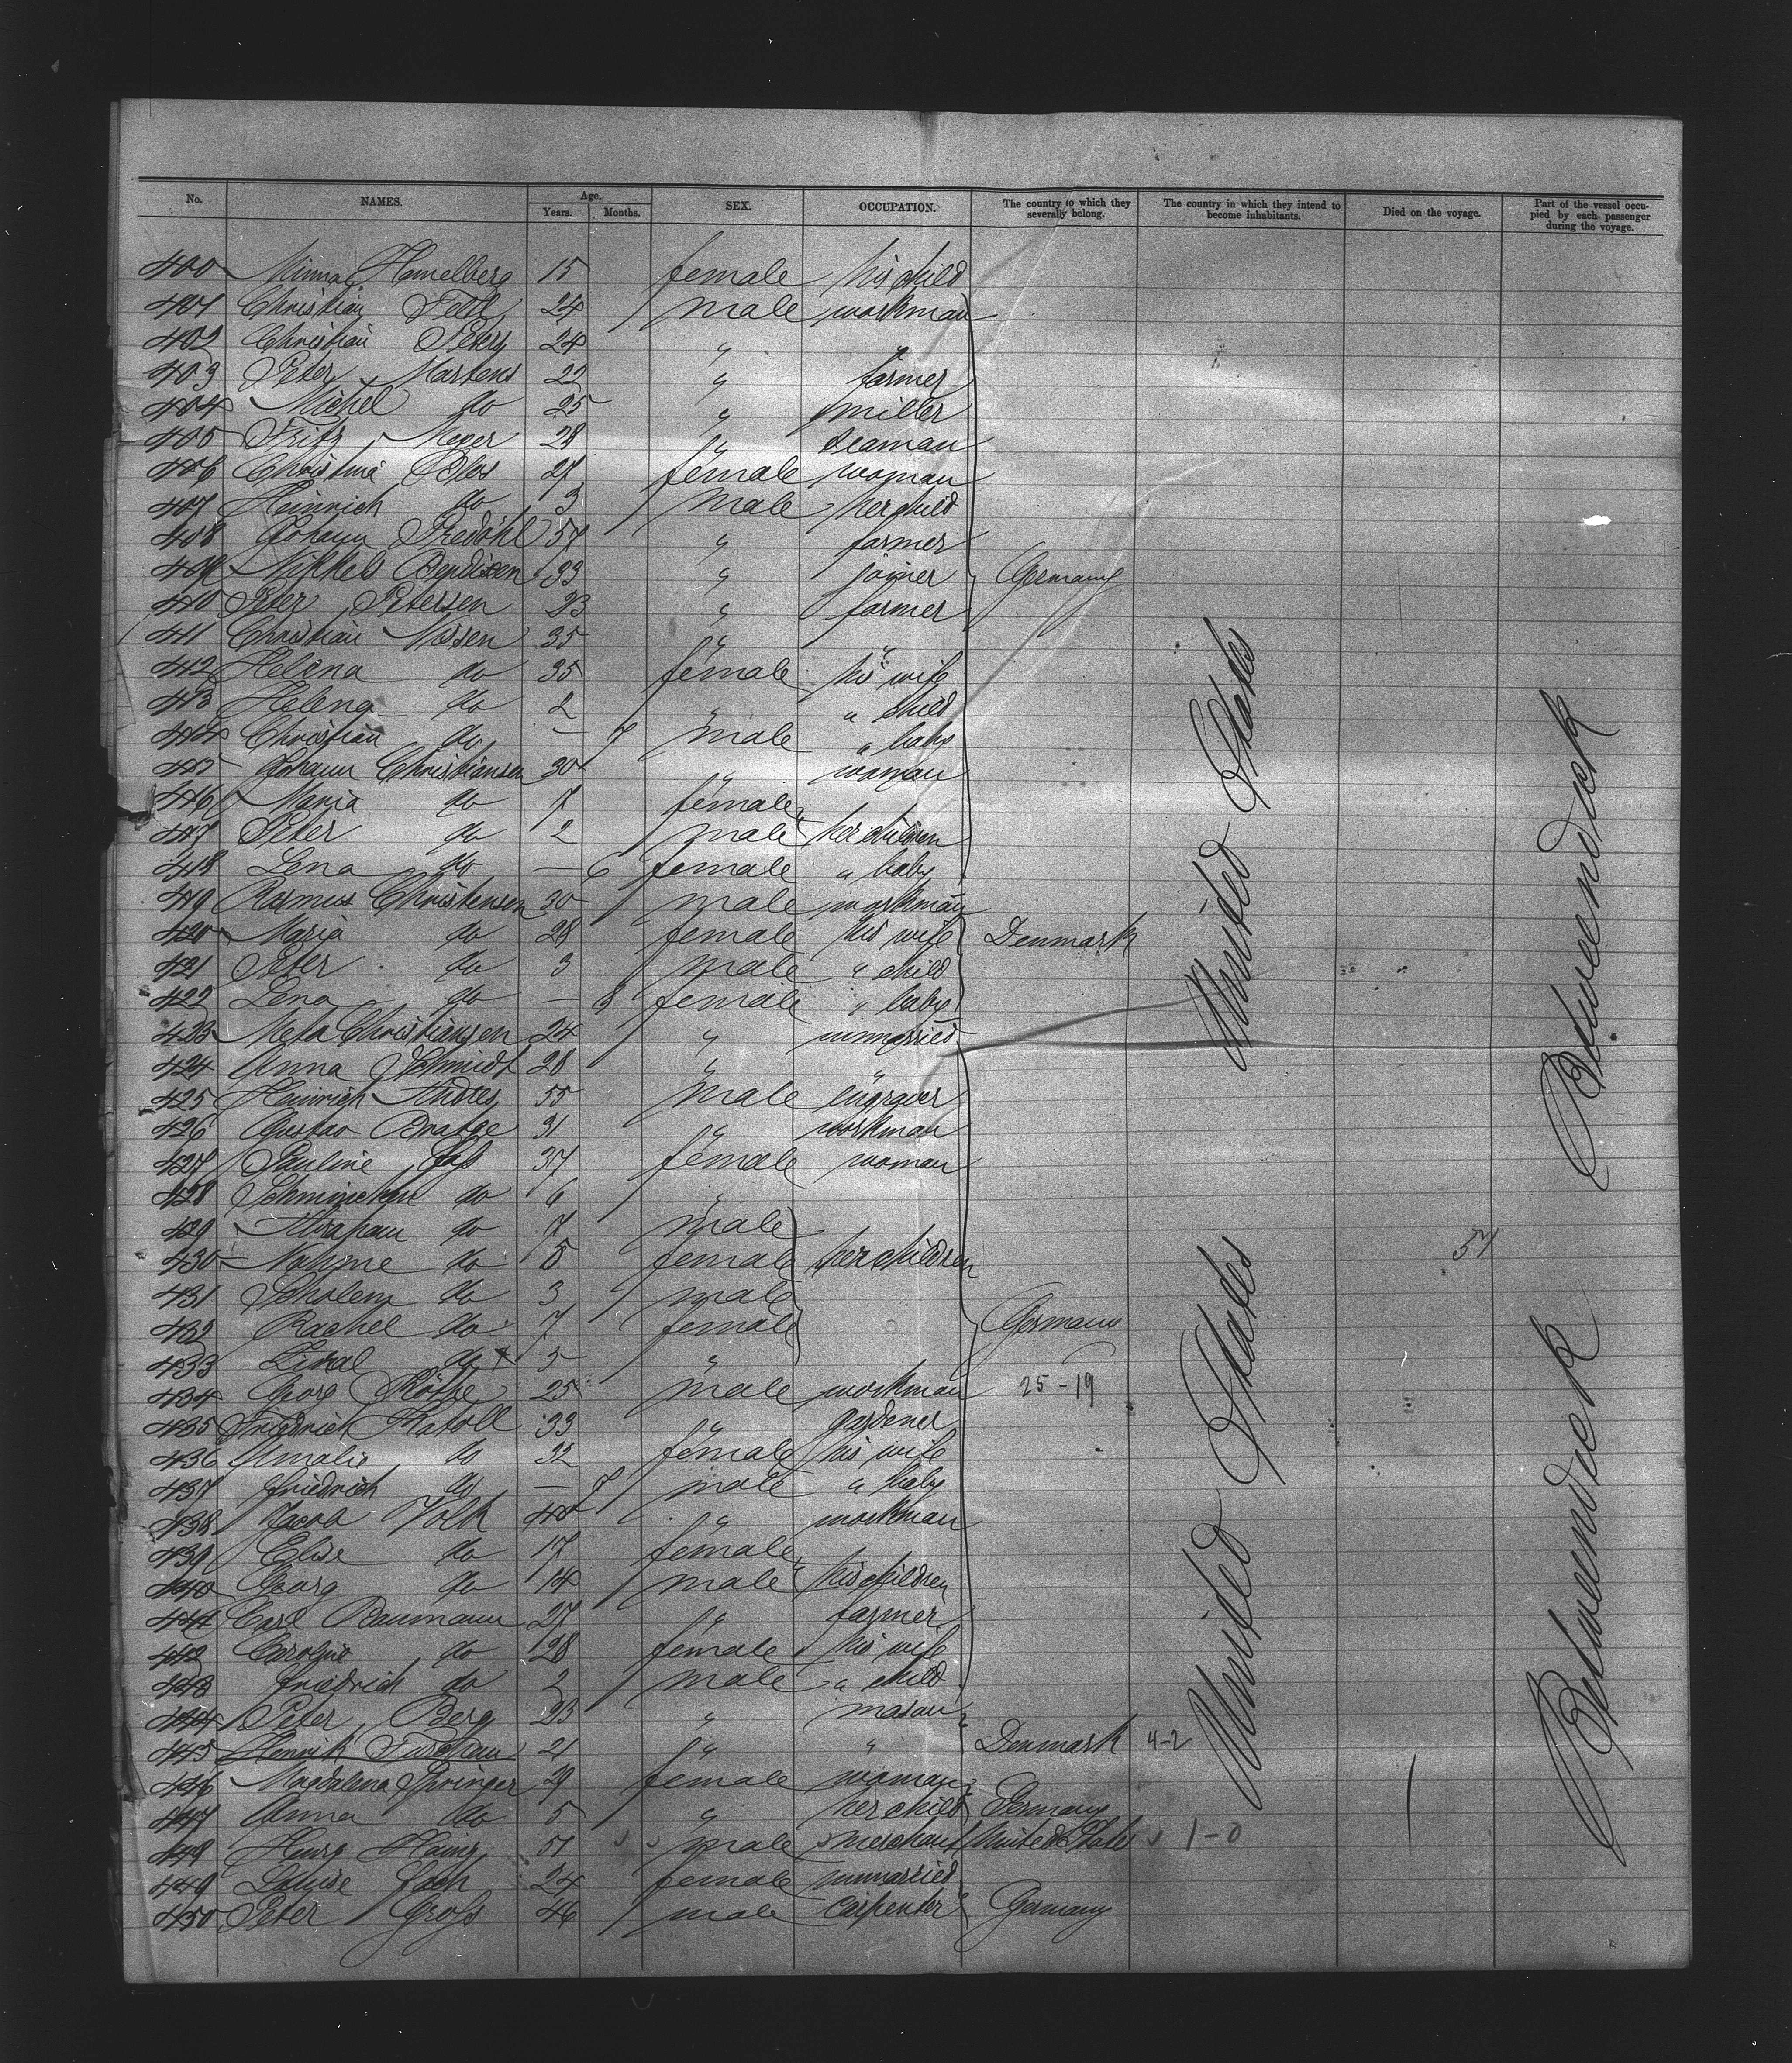 No. NAMES. Age. Years. Months. SEX. OCCUPATION. The country to which they severally belong. The country in which they intend to become inhabitants. Died on the voyage. Part of the vessel occupied by each passenger during the voyage.
400 Minna Hamelberg 15 female his child
401 Christian Fedd 24 male workman
402 Christian Peters 24 " "
403 Peter Martens 22 " farmer
404 Michel do 25 " miller
405 Fritz Meyer 28 " seaman
406 Christina Blos 27 female woman
407 Heinrich do 3 male her child
408 Johann Predöhl 57 " farmer
409 Nikkels Bendixen 33 " joiner Germany
410 Peter Petersen 23 " farmer
411 Christian Nissen 35 " "
412 Helena do 35 female his wife
413 Helena do 2 " " child
414 Christian do — 7 male " baby
415 Johann Christiansen 30 " woman
416 Maria do 7 female
417 Peter do 2 male her children
418 Lena do — 6 female " baby
419 Rasmus Christensen 30 male workman
420 Maria do 28 female his wife Denmark
421 Peter do 3 male " child
422 Lena do — 8 female " baby
423 Meta Christiansen 24 " unmarried
424 Anna Schmidt 28 " "
425 Heinrich Andres 55 male engraver
426 Gustav Bratge 31 " workman
427 Pauline 37 female woman
428 do 6 "
429 Abraham do 7 male
430 Nohme do 5 female her children
431 Scholem do 3 male
432 Rachel do 7 female Germany
433 do 5 "
434 Georg Köthe 25 male workman 25-19
435 Friedrich Katoll 33 " gardener
436 Amalie do 32 female his wife
437 Friedrich do — 7 male " baby
438 Jacob Volk 40 " workman
439 Elise do 17 female
440 Georg do 14 male his children
441 Carl Baumann 27 " farmer
442 Caroline do 28 female his wife
443 Friedrich do 2 male " child
444 Peter Berg 23 " mason
445 Henrik 21 " " Denmark 4-2
446 Magdalena Springer 29 female woman
447 Anna do 5 " her child Germany
448 Henry Haing 51 male merchant United States 1-0
449 Louise 24 female unmarried
450 Peter Groß 46 male carpenter Germany
United States
United States
Betweendeck
Betweendeck
51